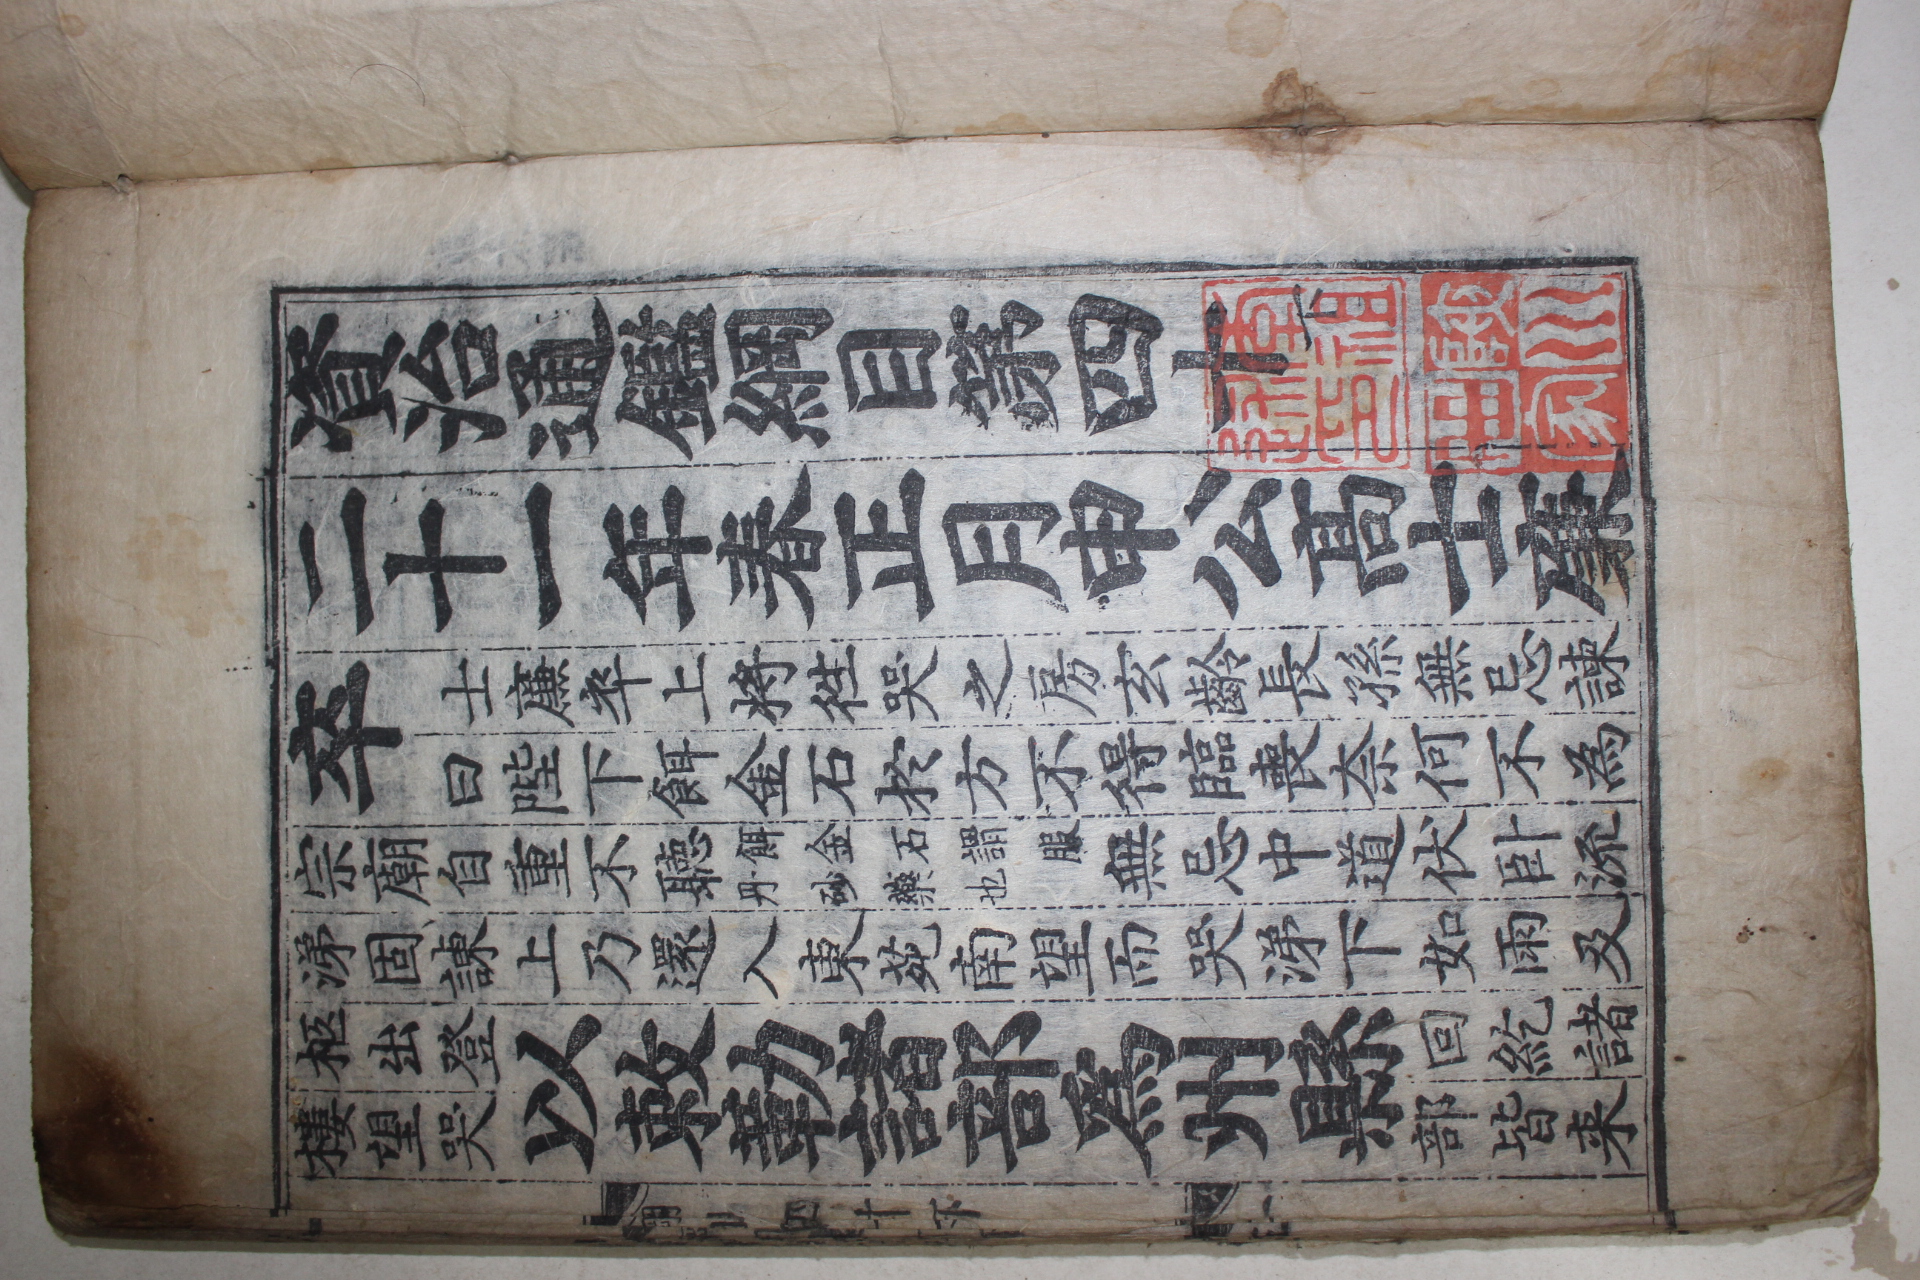 資治通鑑綱目第四十下
二十一年春正月申公高士廉
卒
士廉卒上將徃哭之房玄齡長孫無忌諫
曰陛下餌金石於方不得臨喪奈何不為
宗廟自重不聽餌金石謂服丹砂藥也無忌中道伏卧流
涕固諫上乃還入東苑南望而哭涕下如雨及
柩出登
樓望哭
以敕勒諸部爲州縣
回紇諸
部皆来
陜川世家
四十下